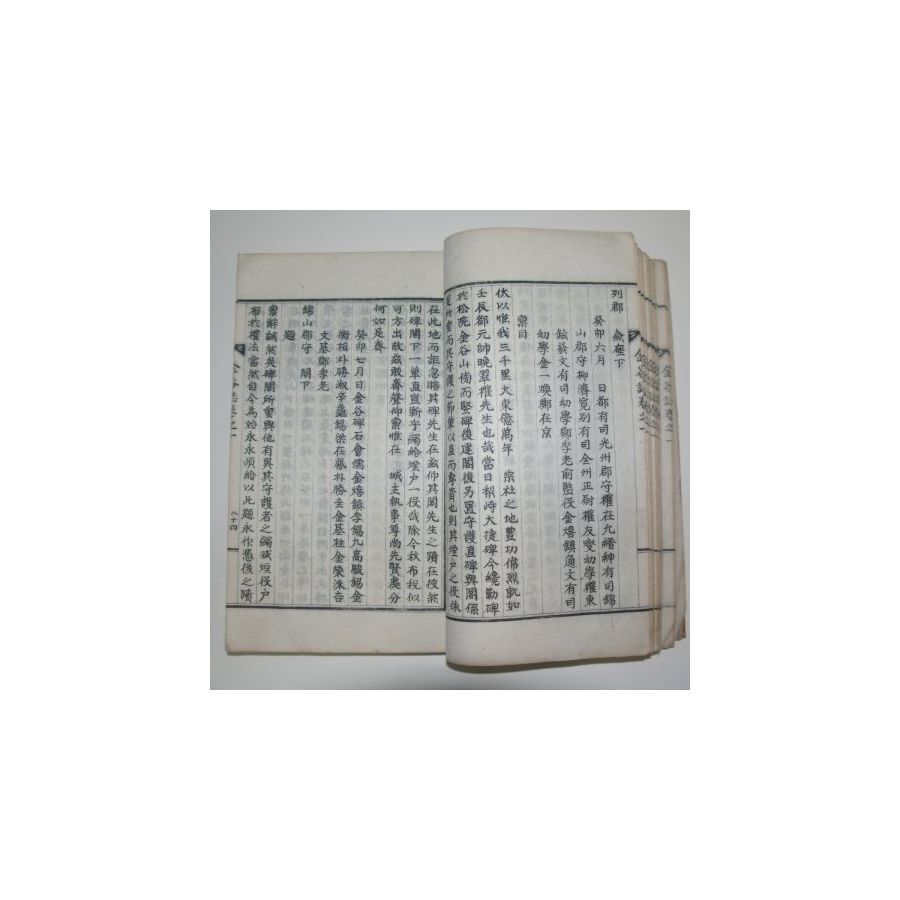 列郡 僉座下
癸卯六月 日都有司光州郡守權在允縉紳有司錦
山郡守柳濟寬別有司全州正尉權友燮幼學權東
鉉掞文有司幼學鄭李老前監役金熺鎮通文有司
幼學金一煥鄭在京
稟目
伏以惟我三千里大東億萬年 宗社之地豊功偉烈孰如
壬辰都元帥晩翠權先生也哉當日梨峙大捷碑今纔勒碑
於松院金谷山傍而竪碑後建閣後另置守護直碑與閣係
是所重而其守護之節專以直而專責也則其煙戶之役係
在此地而詎忽哉其碑先生在玆仰其閣先生之蹟在彼然
則碑閣下一單直亶斷守蠲給煙戶一役哉除今秋布稅似
可方出故玆敢齊聲仰稟惟在 城主執事尊尚先賢處分
何如是齊
癸卯七月日金谷碑石會儒金熺鎮李錫九高駿錫金
衡植朴勝淑辛龜錫梁在鳳朴勝圭金基柱金榮洙吉
文基鄭李老
錦山郡守 閤下
題
稟辭誠然矣碑閣所重與他有異其守護者之蠲減烟役戶
布於禮法當然自今爲始永永頉給以此題永作憑後之蹟
二十四